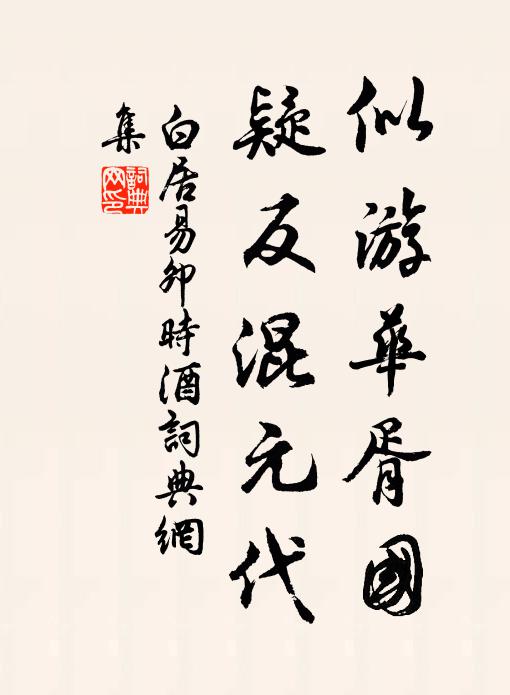 似游華胥國
疑反混元代
白居易卯時酒詞典網
集
詞典
网印